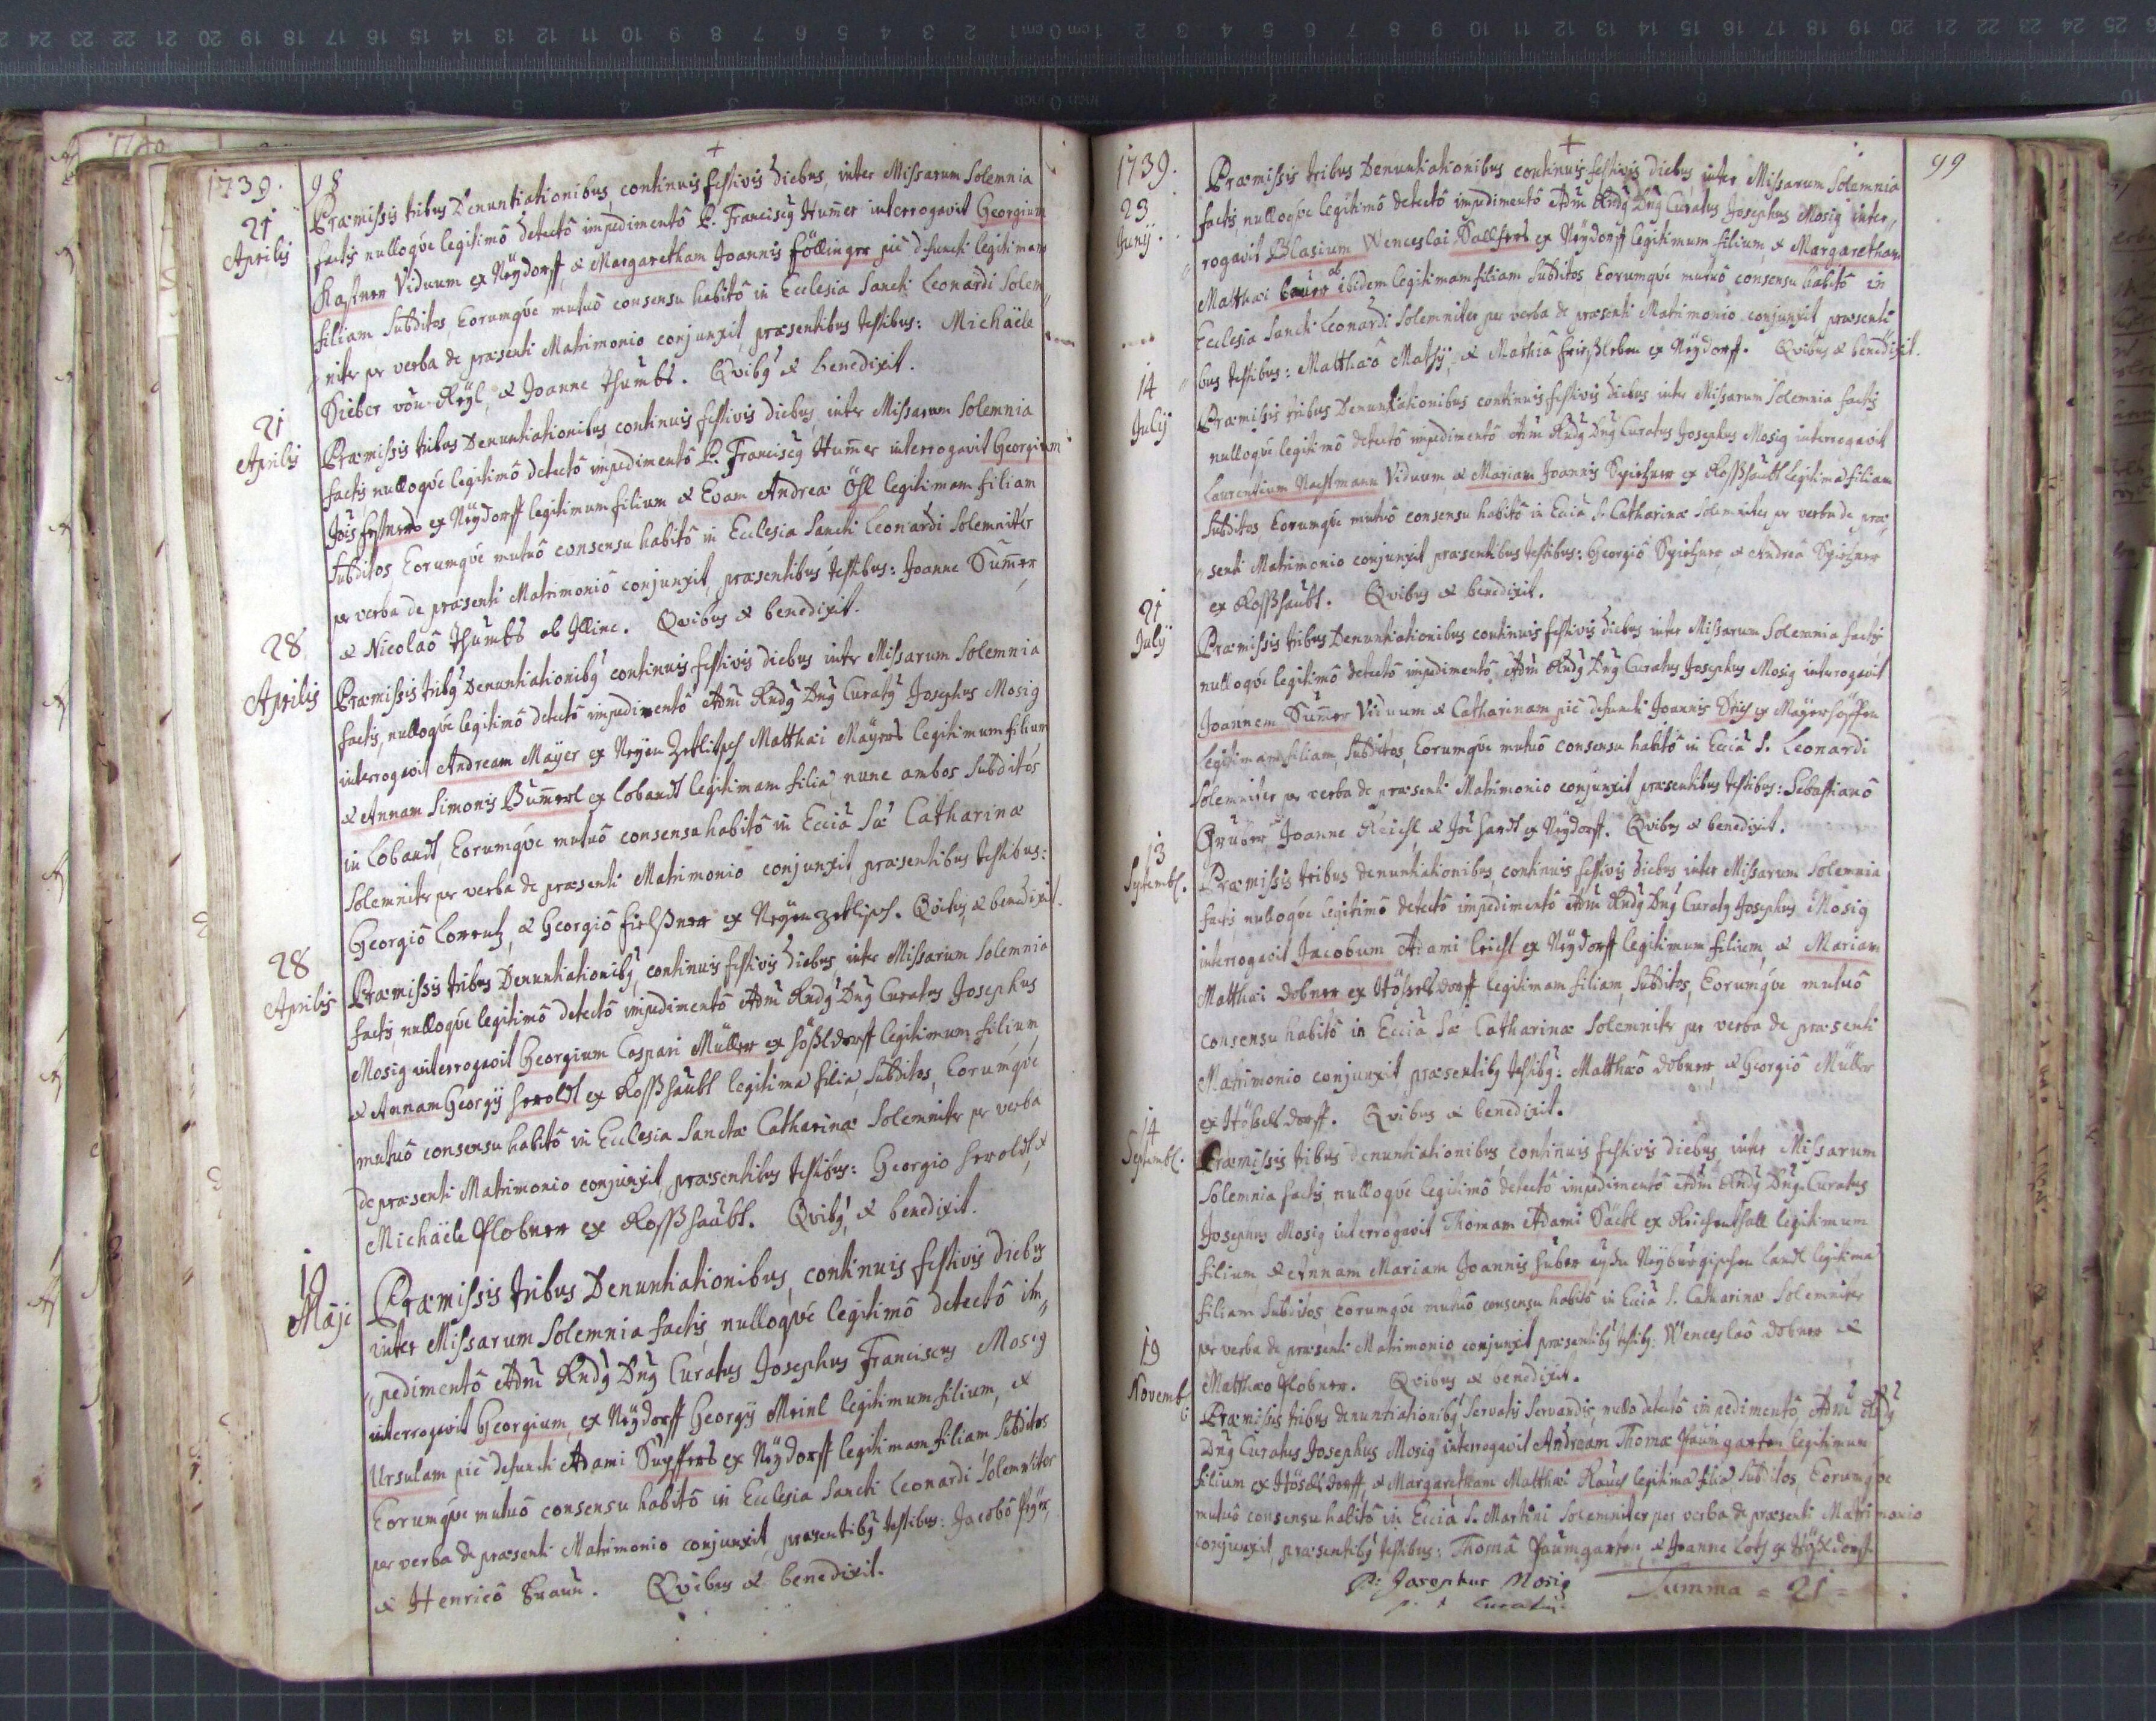 1739.
98
21
Aprilis
Præmissis tribus Denuntiationibus, continuis festivis diebus, inter Missarum Solemnia
factis, nulloqve legitimô detectô impedimentô P. Francisc9 Hum̅er interrogavit Georgium
Kastner Viduum ex Neÿdorff, & Margaretham Joannis föllinger piè defuncti legitimam
filiam Subditos Eorumqve mutuô consensu habitô in Ecclesia Sancti Leonardi Solem„
„niter per verba de præsenti Matrimonio conjunxit, præsentibus testibus: Michaële
Sieber & Joanne Thumbs. Qvib9 & benedixit.
21
Aprilis
Præmissis tribus Denuntiationibus, continuis festivis diebus, inter Missarum Solemnia
factis nulloqve legitimô detectô impedimentô P. Francisc9 Hum̅er interrogavit Georgium
ex Neÿdorff legitimum filium & Evam Andreæ Öfl legitimam filiam
Subditos, Eorumqve mutuô consensu habitô in Ecclesia Sancti Leonardi Solemniter
per verba de præsenti Matrimoniô conjunxit, præsentibus testibus: Joanne Sum̅er
& Nicolaô Thumbs ab Illinc. Qvibus & benedixit.
28
Aprilis
Præmissis trib9 Denuntiationib9 continuis festivis diebus inter Missarum Solemnia
factis, nulloqve legitimô detectô impedimentô Adm̅ Rnd9 Dn9 Curat9 Josephus Mosig
interrogavit Andream Mayer ex Neÿen Zetlitsch Matthæi Maÿers legitimum filium
& Annam Simonis Bum̅erl ex lobandt legitimam filiā, nunc ambos Subditos
in lobandt, Eorumqve mutuô consensu habitô in Ecciâ Sæ Catharinæ
Solemniter per verba de præsenti Matrimonio conjunxit, præsentibus testibus:
Georgiô Lorentz, & Georgiô fielßner ex Neÿenzetlisch. Qvib9 & benedixit.
28
Aprilis
Præmissis tribus Denuntiationib9, continuis festivis diebus, inter Missarum Solemnia
factis, nulloqve legitimô detectô impedimentô Adm̅ Rnd9 Dn9 Curatus Josephus
Mosig interrogavit Georgium Caspari Müller ex hößldorff legitimum filium,
& Annam Georgÿ heroldt ex Roßhaubt legitimā filiā, Subditos, Eorumqve
mutuô consensu habitô in Ecclesia Sanctæ Catharinæ Solemniter per verba
de præsenti Matrimonio conjunxit, præsentibus testibus: Georgio heroldt &
Michaële Plobner ex Roßhaubt. Qvib9 & benedixit.
19
Maji
Præmissis tribus Denuntiationibus, continuis festivis dieb9
inter Missarum Solemnia factis, nulloqve legitimô detectô im„
„pedimentô Adm̅ Rnd9 Dn9 Curatus Josephus Franciscus Mosig
interrogavit Georgium, ex Neÿdorff Georgÿ Meinl legitimum filium, &
Ursulam piè defuncti Adami Supffers ex Neÿdorff legitimam filiam, Subditos
Eorumqve mutuô consensu habitô in Ecclesia Sancti Leonardi Solemniter
per verba de præsenti Matrimonio conjunxit, præsentib9 testibus: Jacobô
& Henricô Braun. Qvibus & benedixit.
1739.
99
23
Junÿ.
Præmissis tribus Denuntiationibus continuis festivis diebus, inter Missarum Solemnia
factis, nulloqve legitimô detectô impedimentô Adm̅ Rnd9 Dn9 Curatus Josephus Mosig inter„
rogavit Blasium Wenceslai ex Neÿdorff legitimum filium, & Margaretham
Matthæi bauer ab ibidem legitimam filiam Subditos Eorumqve mutuô consensu habitô in
Ecclesia Sancti Leonardi Solemniter per verba de præsenti Matrimonio conjunxit præsenti
bus testibus: Matthæô Mathÿ, & Mathia ex Neÿdorff. Qvibus & benedixit.
14
Julÿ
Præmissis tribus Denuntiationibus continuis festivis diebus inter Missarum Solemnia factis
nulloqve legitimô detectô impedimentô Adm̅ Rnd9 Dn9 Curatus Josephus Mosig interrogavit
Laurentium Nachtmann Viduum, & Mariam Joannis ex Roßhaubt legitimā filiam
Subditos Eorumqve mutuô consensu habitô in Ecciâ S. Catharinæ Solemniter per verba de præ„
„senti Matrimonio conjunxit præsentibus testibus: Georgiô & Andreâ
ex Roßhaubt. Qvibus & benedixit.
21
July
Præmissis tribus Denuntiationibus continuis festivis diebus inter Missarum Solemnia factis
nulloqve legitimô detectô impedimentô, Adm̅ Rnd9 Dn9 Curatus Josephus Mosig interrogavit
Joannem Sum̅er Viduum & Catharinam piè defuncti Joannis ex Maÿershöffen
legitimam filiam, Subditos, Eorumqve mutuô consensu habitô in Ecciâ S. Leonardi
Solemniter per verba de præsenti Matrimonio conjunxit præsentibus testibus: Sebastianô
Gruber Joanne Reichl, & Joē hardt ex Neÿdorff. Qvib9 & benedixit.
13
Septembr.
Præmissis tribus denuntiationibus, continuis festivis diebus inter Missarum Solemnia
factis, nulloqve legitimô detectô impedimentô Adm̅ Rnd9 Dn9 Curat9 Josephus Mosig
interrogavit Jacobum Adami Leichl ex Neÿdorff legitimum filium, & Mariam
Matthæi dobner ex Hößelsdorff legitimam filiam, Subditos, Eorumqve mutuô
consensu habitô in Ecciâ Sæ Catharinæ Solemniter per verba de præsenti
Matrimonio conjunxit præsentib9 testib9: Matthæô dobner & Georgiô Müller
ex Hößelsdorff. Qvibus & benedixit.
14
Septembr.
Præmissis tribus denuntiationibus, continuis festivis diebus inter Missarum
Solemnia factis, nulloqve legitimô detectô impedimentô Adm̅ Rnd9 Dn9 Curatus
Josephus Mosig interrogavit Thomam Adami Säckl ex Reichenthall legitimum
filium & Annam Mariam Joannis huber Neÿburgischen landt legitimā
filiam Subditos, Eorumqve mutuô consensu habitô in Ecciâ S. Catharinæ Solemniter
per verba de præsenti Matrimonio conjunxit præsentib9 testib9: Wenceslaô dobner &
Matthæo Plobner. Qvibus & benedixit.
19
Novemb.
Præmissis tribus denuntiationib9, Servatis Servandis, nullo detectô impedimentô, Adm̅ Rnd9
Dn9 Curatus Josephus Mosig interrogavit Andream Thomæ Paumgarten legitimum
filium ex Hößelsdorff, & Margaretham Matthæi Rauch legitimā filiā Subditos, Eorumqve
mutuô consensu habitô in Ecciâ S. Martini Solemniter per verba de præsenti Matrimonio
conjunxit, præsentib9 testibus: Thomâ Paumgarten, & Joanne Lotz ex Hößldorff.
P: Josephus Mosig
p. t. Curatus
Summa = 21 =